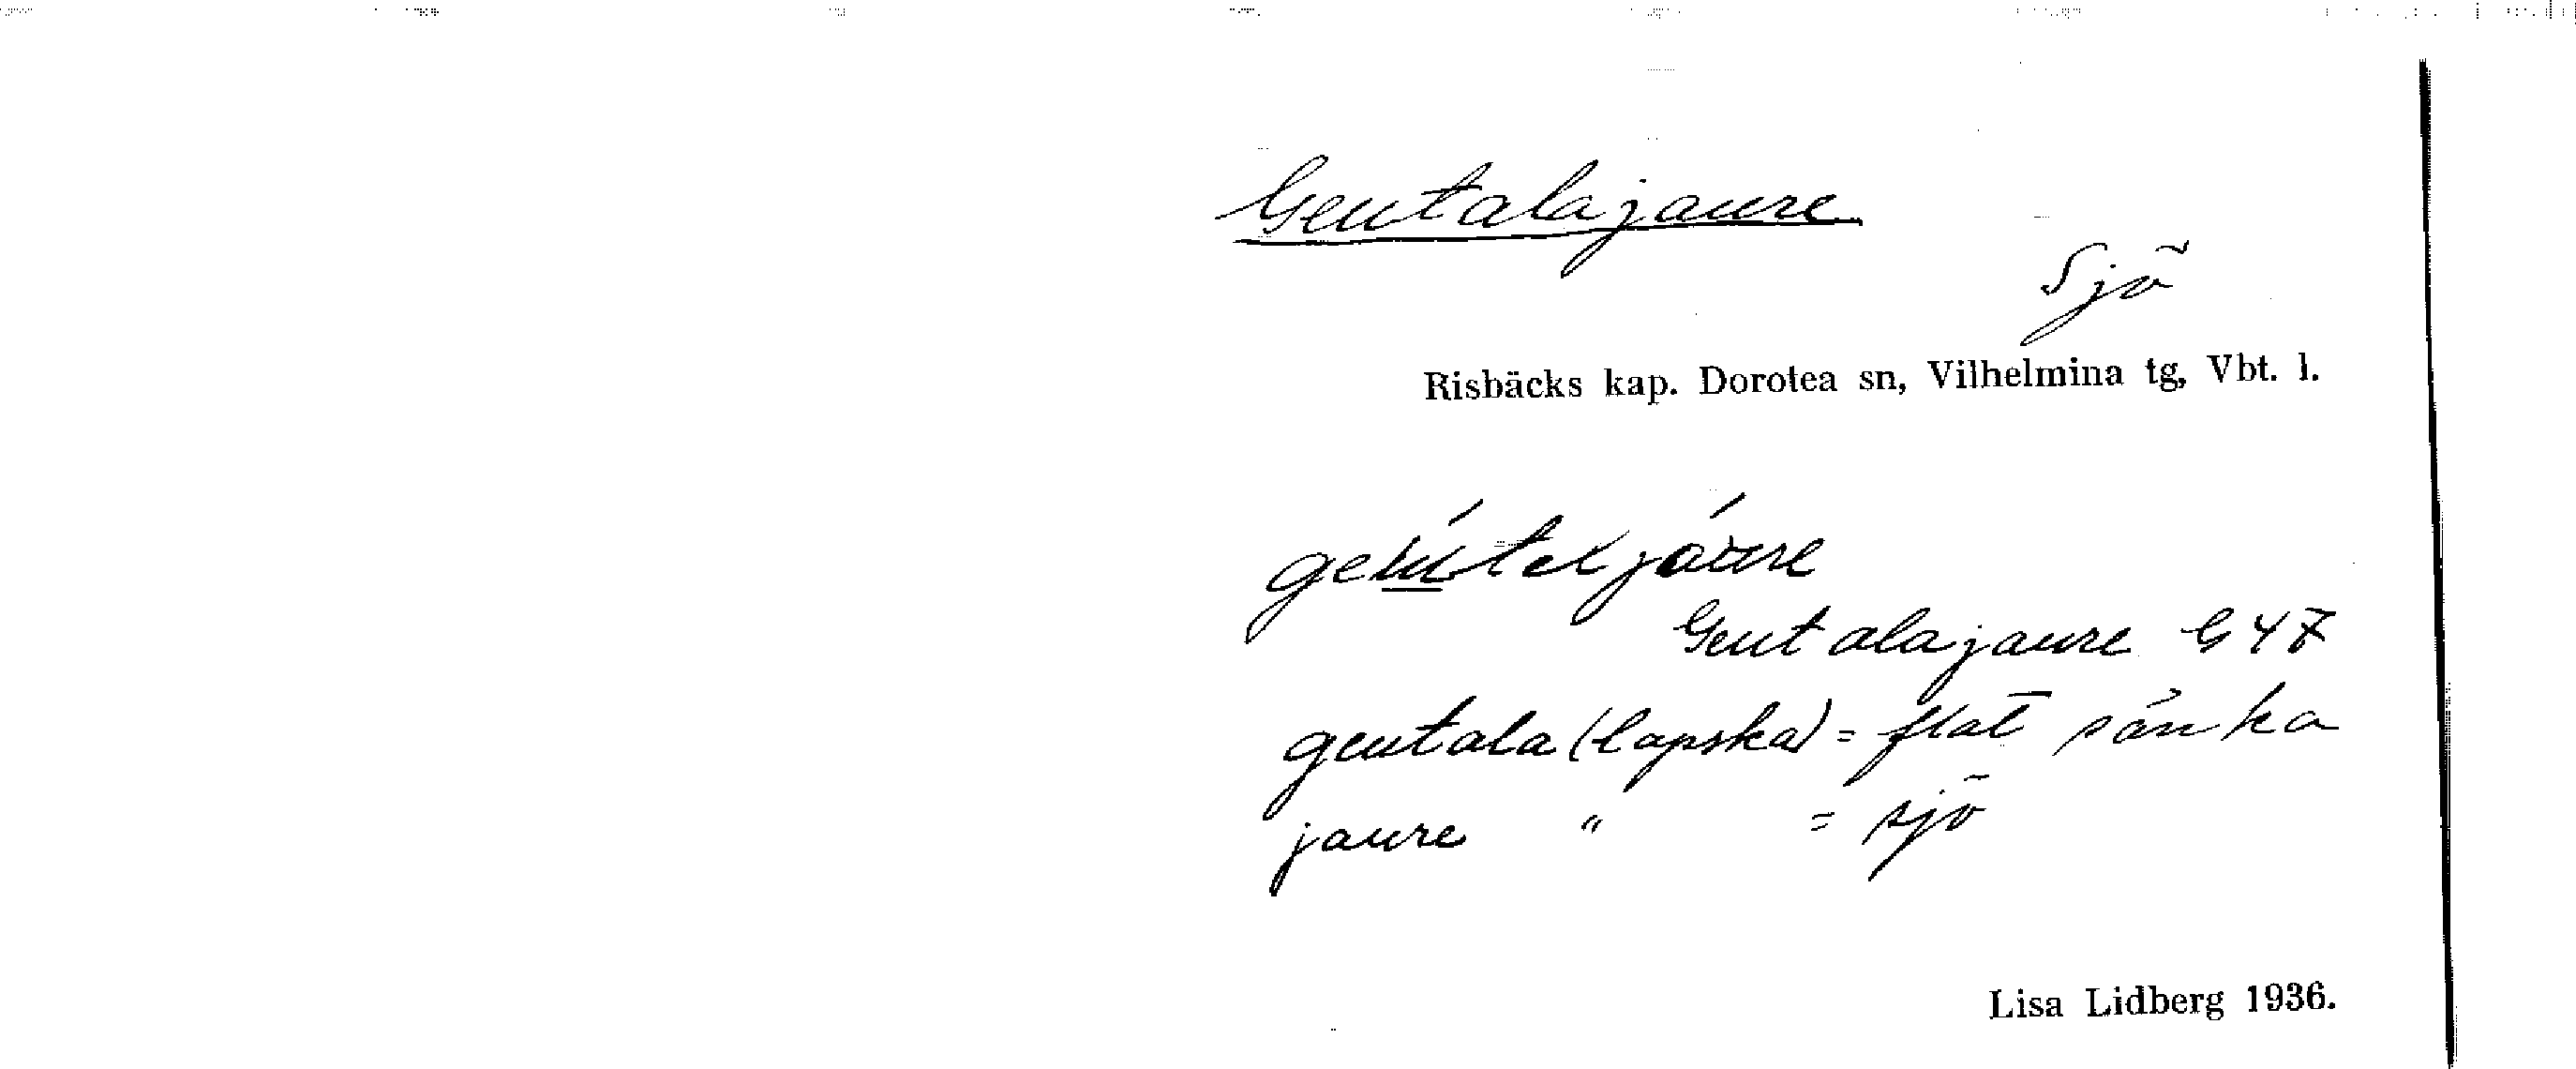 Geutalajaure
Sjö
Risbäcks kap. Dorotea sn, Vilhelmina tg, Vbt. l.
Geutalajaure G 47
geutala (lapska) = flat sänka
jaure " = sjö
Lisa Lidberg 1936.